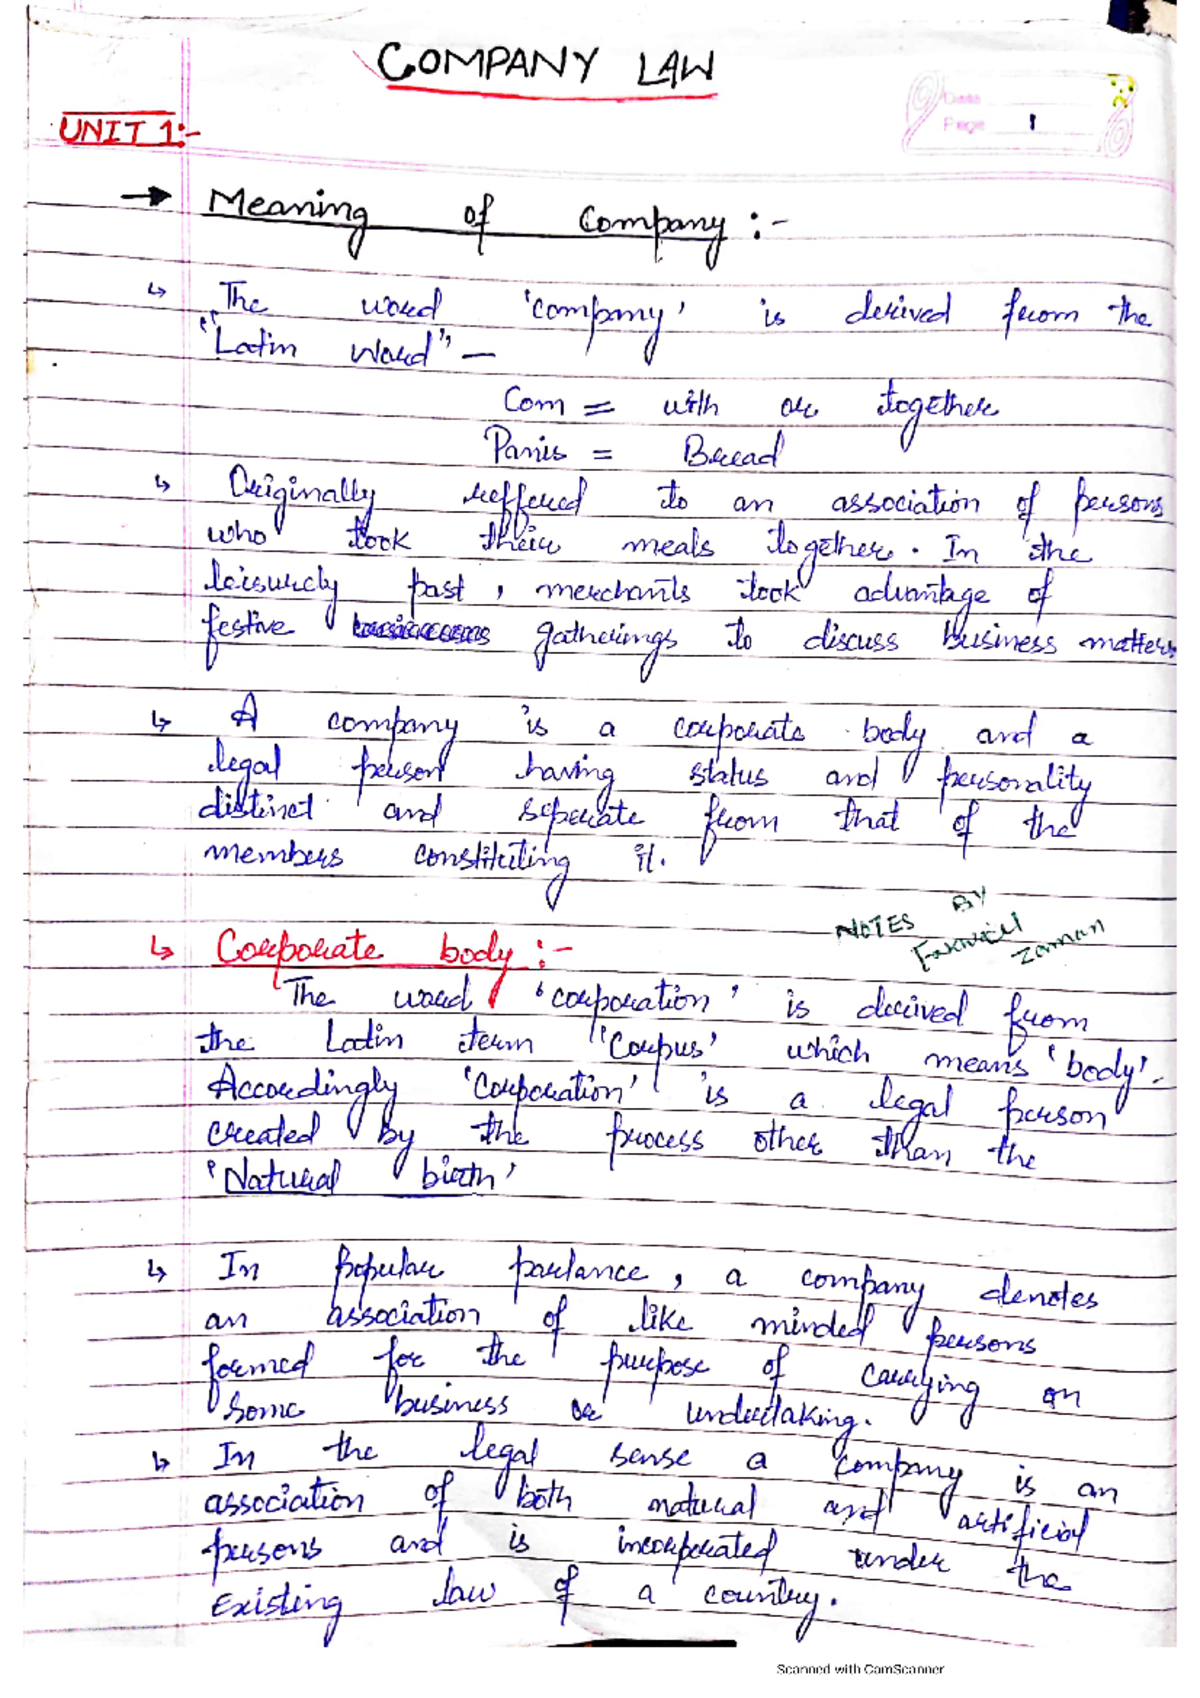 COMPANY LAW
Date
Page 1
UNIT 1:-
→ Meaning of Company :-
↳ The word 'company' is derived from the
"Latin Word" —
Com = with or together
Panis = Bread
↳ Originally reffered to an association of persons
who took their meals together. In the
leisurely past, merchants took advantage of
festive gatherings to discuss business matters
↳ A company is a corporate body and a
legal person having status and personality
distinct and seperate from that of the
members constituting it.
NOTES BY
Zaman
↳ Corporate body :-
The word 'corporation' is derived from
the Latin term 'Corpus' which means 'body'.
Accordingly 'Corporation' is a legal person
created by the process other than the
'Natural birth'
↳ In Popular parlance, a company denotes
an association of like minded persons
formed for the purpose of carrying on
some business or undertaking.
↳ In the legal sense a company is an
association of both natural and artificial
persons and is incorporated under the
Existing law of a country.
Scanned with CamScanner